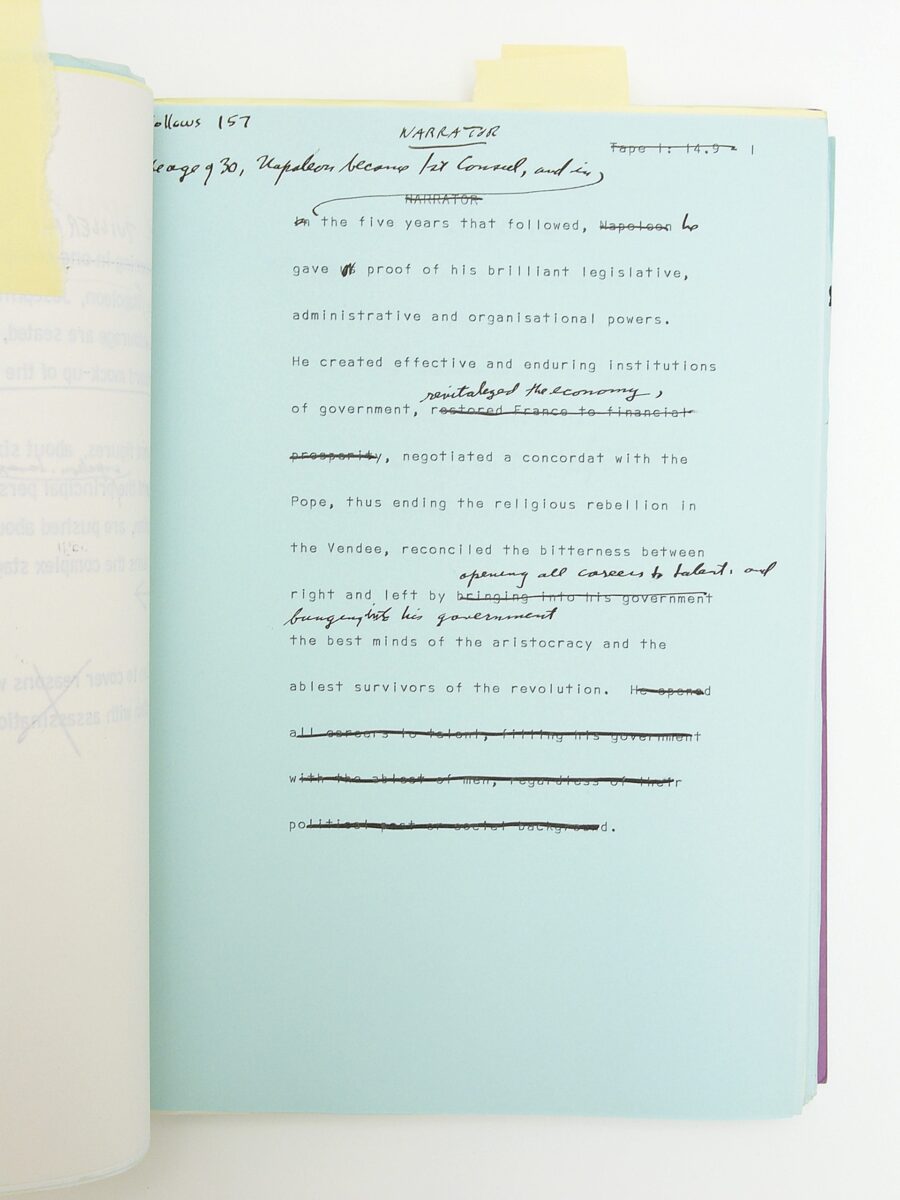 ollows 157
NARRATOR
Tape 1: 14.9 - 1
age of 30, Napoleon became 1st Consul, and in
NARRATOR
In the five years that followed, Napoleon he
gave proof of his brilliant legislative,
administrative and organisational powers.
He created effective and enduring institutions
revitalized the economy,
of government, restored France to financial
prosperity, negotiated a concordat with the
Pope, thus ending the religious rebellion in
the Vendee, reconciled the bitterness between
opening all careers to talent, and
right and left by bringing into his government
bringing into his government
the best minds of the aristocracy and the
ablest survivors of the revolution. He opened
all careers to talent, filling his government
with the ablest of men, regardless of their
political past or social background.